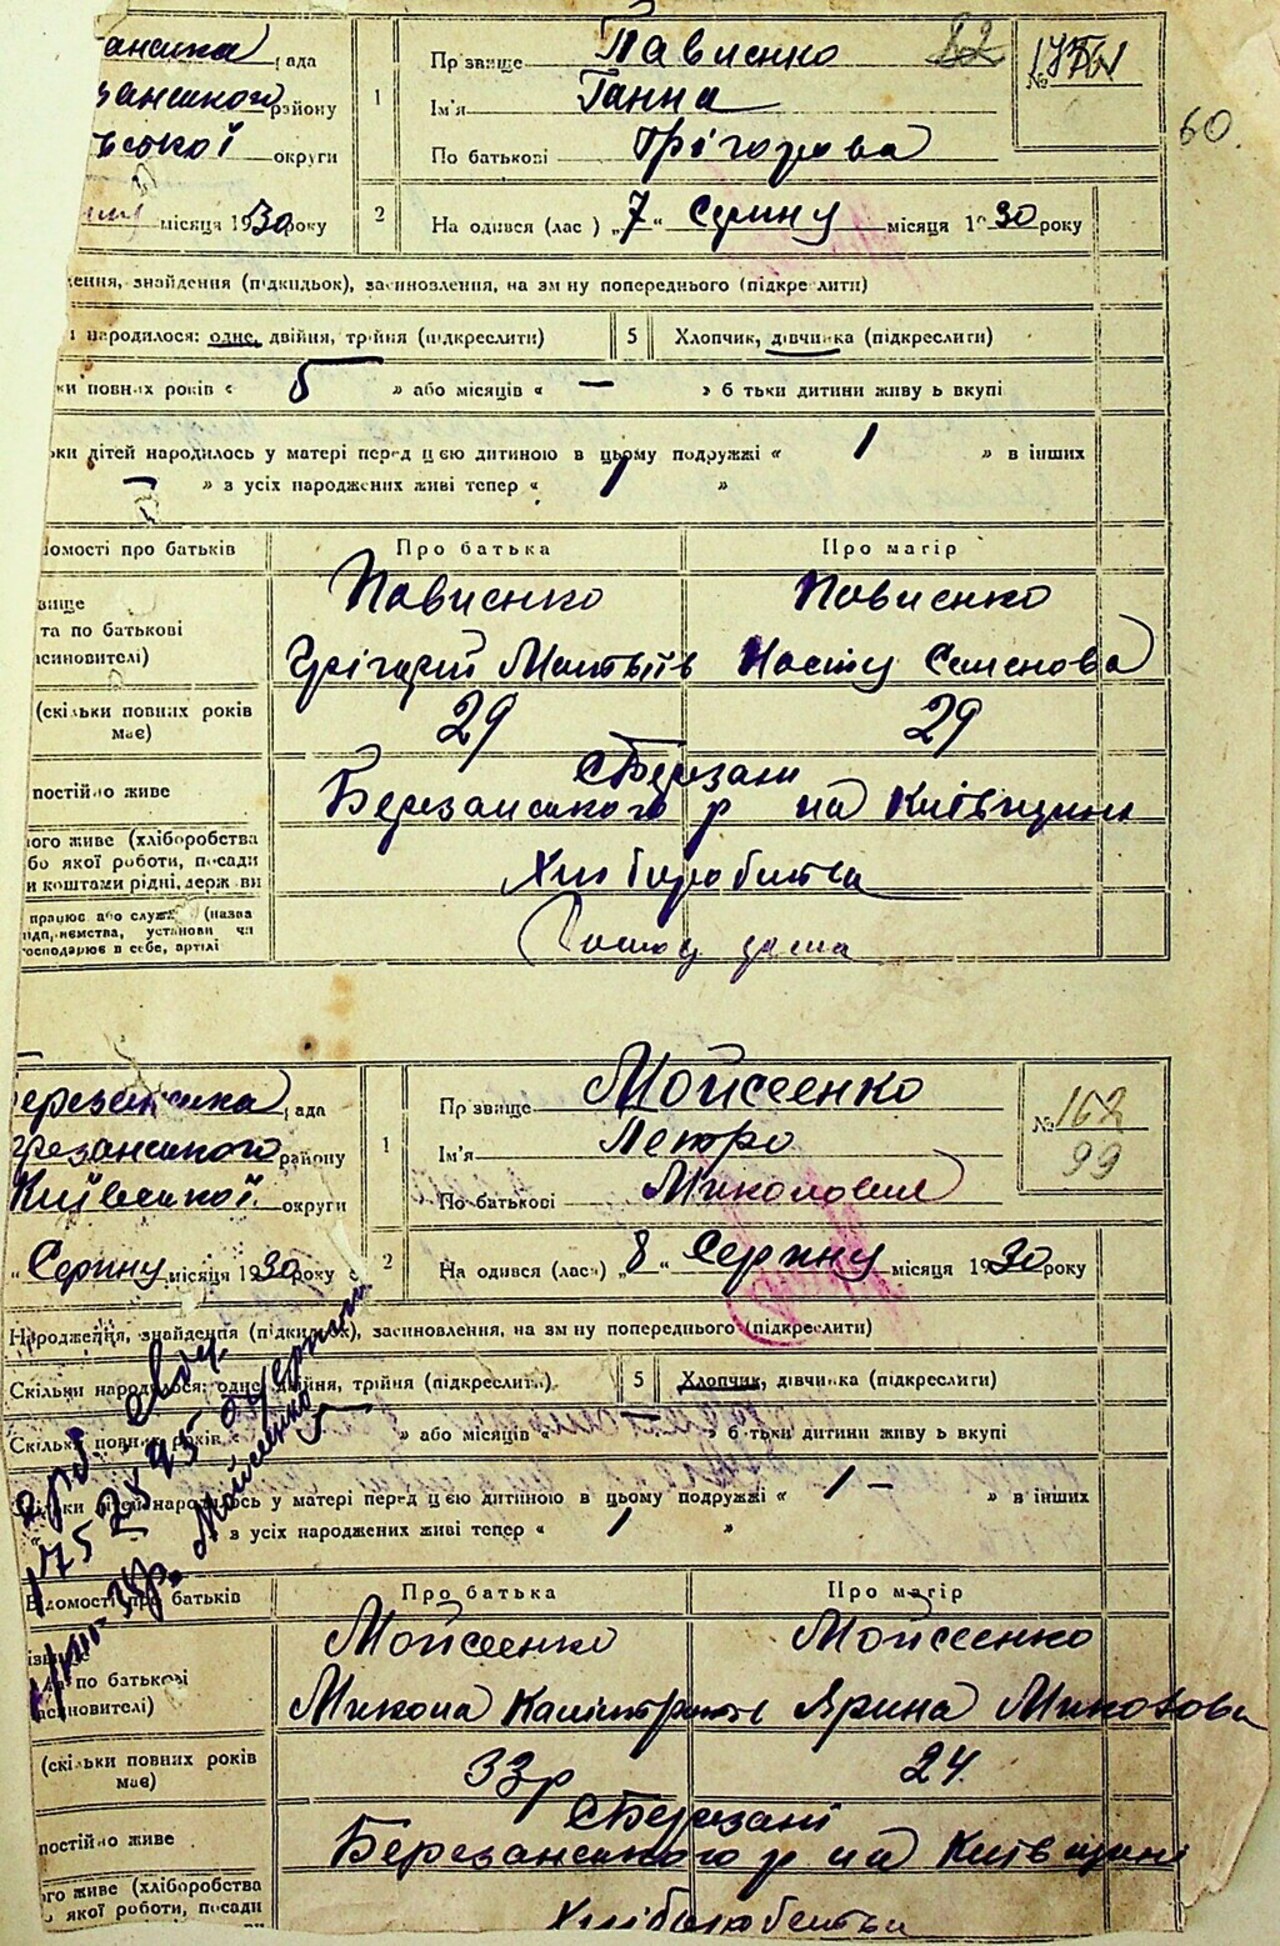 60.
рада
Прізвище Павленко 82
№
району
1
Ім'я Ганна
ської округи
По батькові Грігорова
місяця 1930 року
2
На одився (лас ) „7“ Серпну місяця 1930 року
ення, знайдення (підкидьок), засиновлення, на зм ну попереднього (підкре лити)
народилося: одне, двійня, трійня (підкреслити)
5
Хлопчик, дівчинка (підкреслити)
ки повних років « 5 » або місяців « — » б тьки дитини живу ь вкупі
ьки дітей народилось у матері перед цією дитиною в цьому подружжі « 1 » в інших
— » з усіх народжених живі тепер « 1 »
домості про батьків
Про батька
Про матір
звище
та по батькові
синовителі)
Павленко
Грігорій Матвіїв
Павленко
Настя Семенова
(скільки повних років має)
29
29
постійно живе
с Березани
Березанського р на Київщині
ого живе (хліборобства
бо якої роботи, посади
и коштами рідні, держ ви
Хліборобства
працює або служ (назва
ідприємства, установи чи
господарює в себе, артілі
Березанська рада
Прізвище Мойсеенко
№ 162
99
Березанського району
1
Ім'я Петро
Київської округи
По батькові Миколовил
„ Серпну місяця 1930 року
2
На одився (лась) „8“ Серпну місяця 1930 року
Народження, знайдення (підкидьок), засиновлення, на зм ну попереднього (підкреслити)
Скільки народилося: одне, двійня, трійня (підкреслити)
5
Хлопчик, дівчинка (підкреслити)
Скільки повних років « 5 » або місяців « — » б тьки дитини живу ь вкупі
Скільки дітей народилось у матері перед цією дитиною в цьому подружжі « 1 — » в інших
« » з усіх народжених живі тепер « 1 »
Мойсеенко
Відомості про батьків
Про батька
Про матір
ізвище
та по батькові
синовителі)
Мойсеенко
Микола Калістратів
Мойсеенко
Ярина Миколова
(скільки повних років має)
33р
24.
постійно живе
с Березані
Березанського р на Київщині
ого живе (хліборобства
якої роботи, посади
Хліборобства